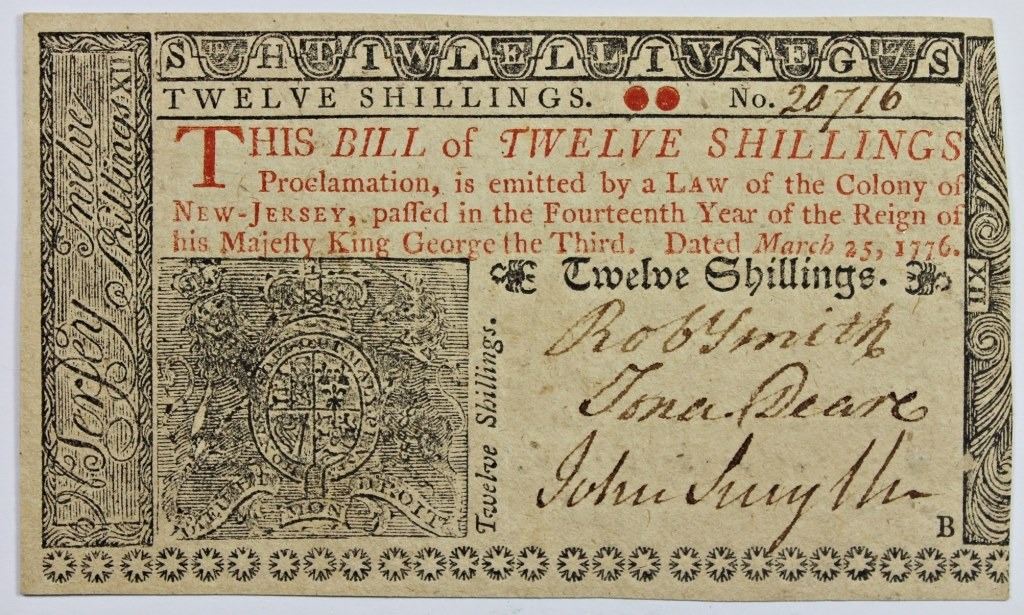 SHTIWLELLIVNEGS
TWELVE SHILLINGS. No. 20716
THIS BILL of TWELVE SHILLINGS
Proclamation, is emitted by a LAW of the Colony of
NEW-JERSEY, paſſed in the Fourteenth Year of the Reign of
his Majeſty King George the Third. Dated March 25, 1776.
Twelve Shillings.
Robt Smith
Jona. Deare
John Smyth
B
Twelve Shillings.
N Jerſey Twelve
Shillings XII
XII
DIEU ET MON DROIT